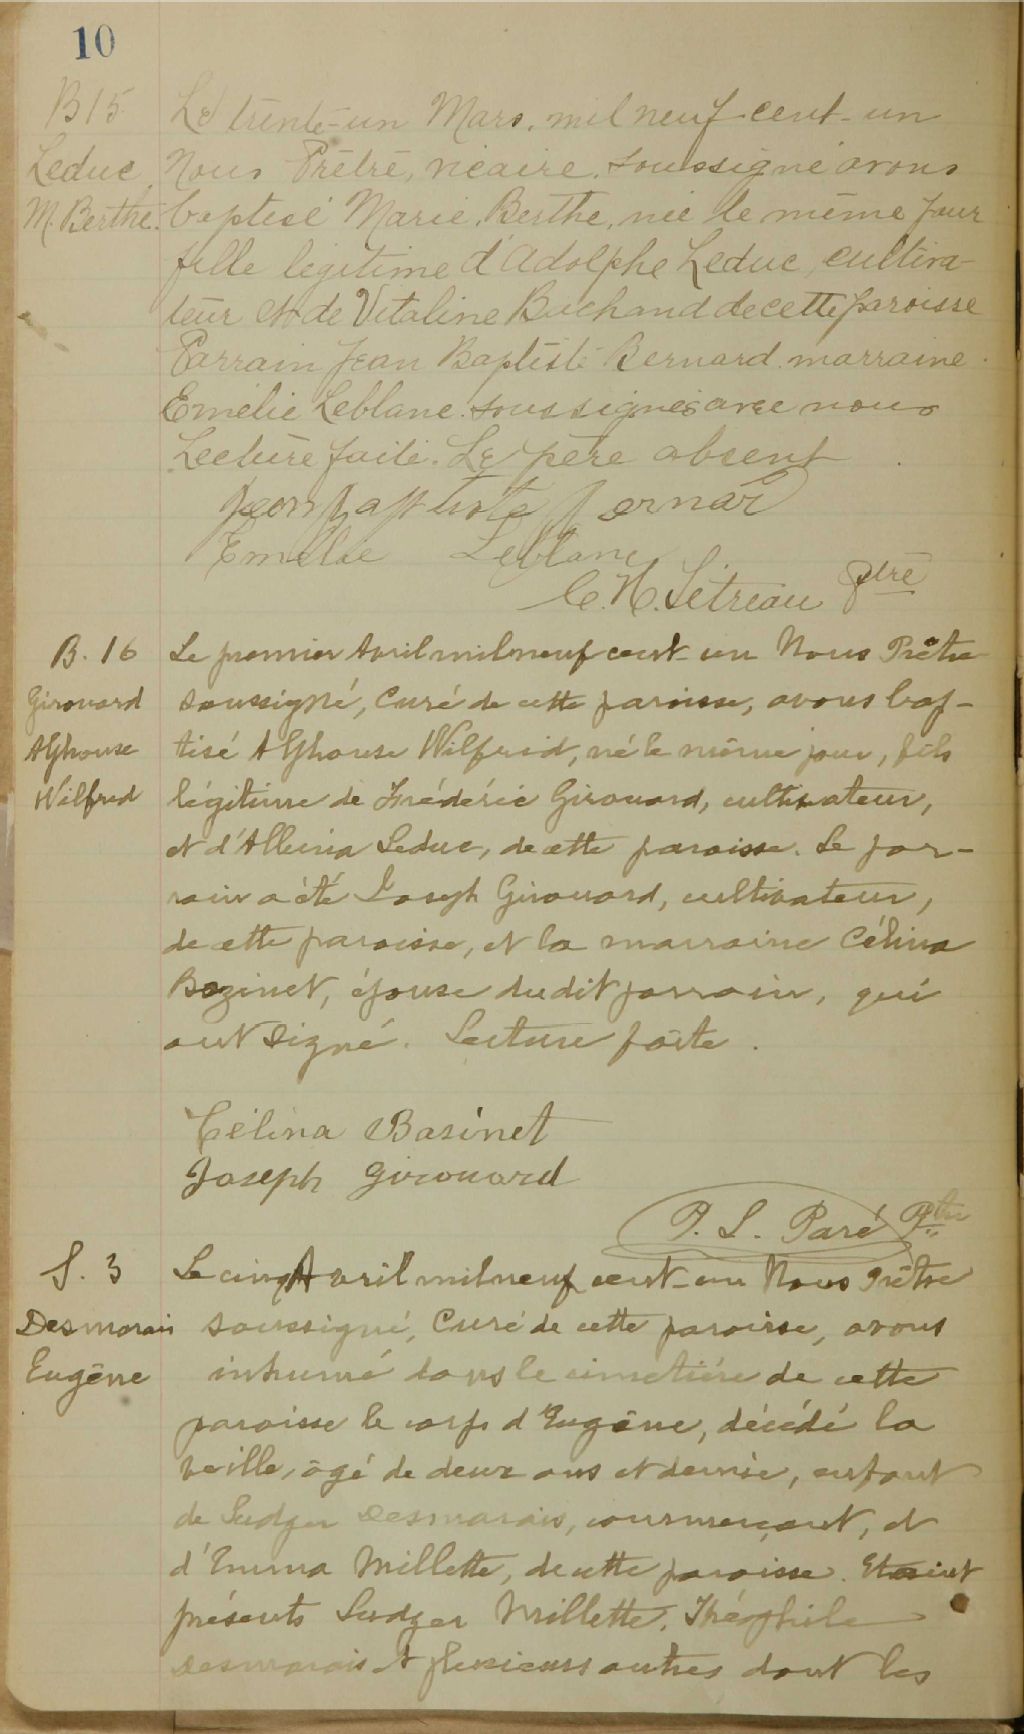 10
B 15
Leduc
M. Berthe.
Le trente-un Mars, mil neuf cent-un
Nous Prêtre, vicaire, soussigné avons
baptisé Marie, Berthe, née le même jour
fille légitime d'Adolphe Leduc, cultiva-
teur et de Vitaline Buchand de cette paroisse
Parrain Jean Baptiste Bernard marraine
Emélie Leblanc soussignés avec nous
Lecture faite. Le père absent
Jean baptiste bernar
Emélie Leblanc
C. H. Létreau ptre
B. 16
Girouard
Alphonse
Wilfred
Le premier Avril mil neuf cent-un Nous Prêtre
soussigné, Curé de cette paroisse, avons bap-
tisé Alphonse Wilfrid, né le même jour, fils
légitime de Frédéric Girouard, cultivateur,
et d'Albina Leduc, de cette paroisse. Le par-
rain a été Joseph Girouard, cultivateur,
de cette paroisse, et la marraine Célina
Bazinet, épouse du dit parrain, qui
ont signé. Lecture faite.
Célina Basinet
Joseph Girouard
P. L. Paré Ptre
S. 3
Desmarais
Eugène
Le cinq Avril mil neuf cent-un Nous Prêtre
soussigné, Curé de cette paroisse, avons
inhumé dans le cimetière de cette
paroisse le corps d'Eugène, décédé la
veille, âgé de deux ans et demie, enfant
de Ludger Desmarais, commerçant, et
d'Emma Millette, de cette paroisse. Etaient
présents Ludger Millette, Théophile
Desmarais & plusieurs autres dont les